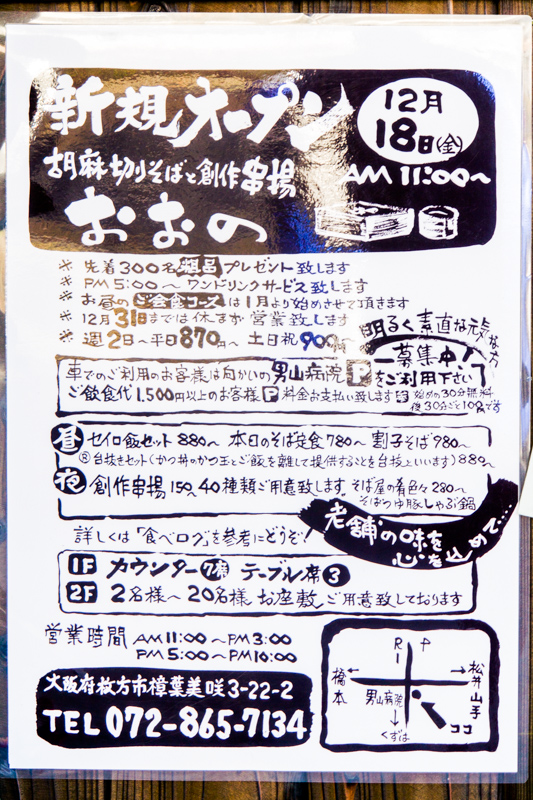 新規オープン
12月
18日(金)
AM 11:00〜
胡麻切りそばと創作串揚
おおの
※ 先着300名 粗品 プレゼント致します
※ PM 5:00〜 ワンドリンクサービス致します
※ お昼のご会食コースは1月より始めさせて頂きます
※ 12月31日までは休まず営業致します
※ 週2日〜平日870円〜 土日祝900円〜
明るく素直な元気な方
募集中!
車でのご利用のお客様は向かいの男山病院Pをご利用下さい
ご飲食代1,500円以上のお客様P料金お支払い致します
始めの30分無料
後30分ごと108円です
昼 セイロ飯セット880〜 本日のそば定食780〜 割子そば980〜
台抜きセット(かつ丼のかつ玉とご飯を離して提供することを台抜といいます)880〜
夜 創作串揚150〜40種類ご用意致します。そば屋の肴色々280〜
そばつゆ豚しゃぶ鍋
老舗の味を
心を込めて・・・・
詳しくは「食べログ」を参考にどうぞ!
1F カウンター7席 テーブル席3
2F 2名様〜20名様 お座敷ご用意致しております
営業時間 AM 11:00〜PM 3:00
PM 5:00〜PM 10:00
大阪府枚方市樟葉美咲3-22-2
TEL 072-865-7134
R1
P
橋本
松井山手
男山病院
くずは
ココ